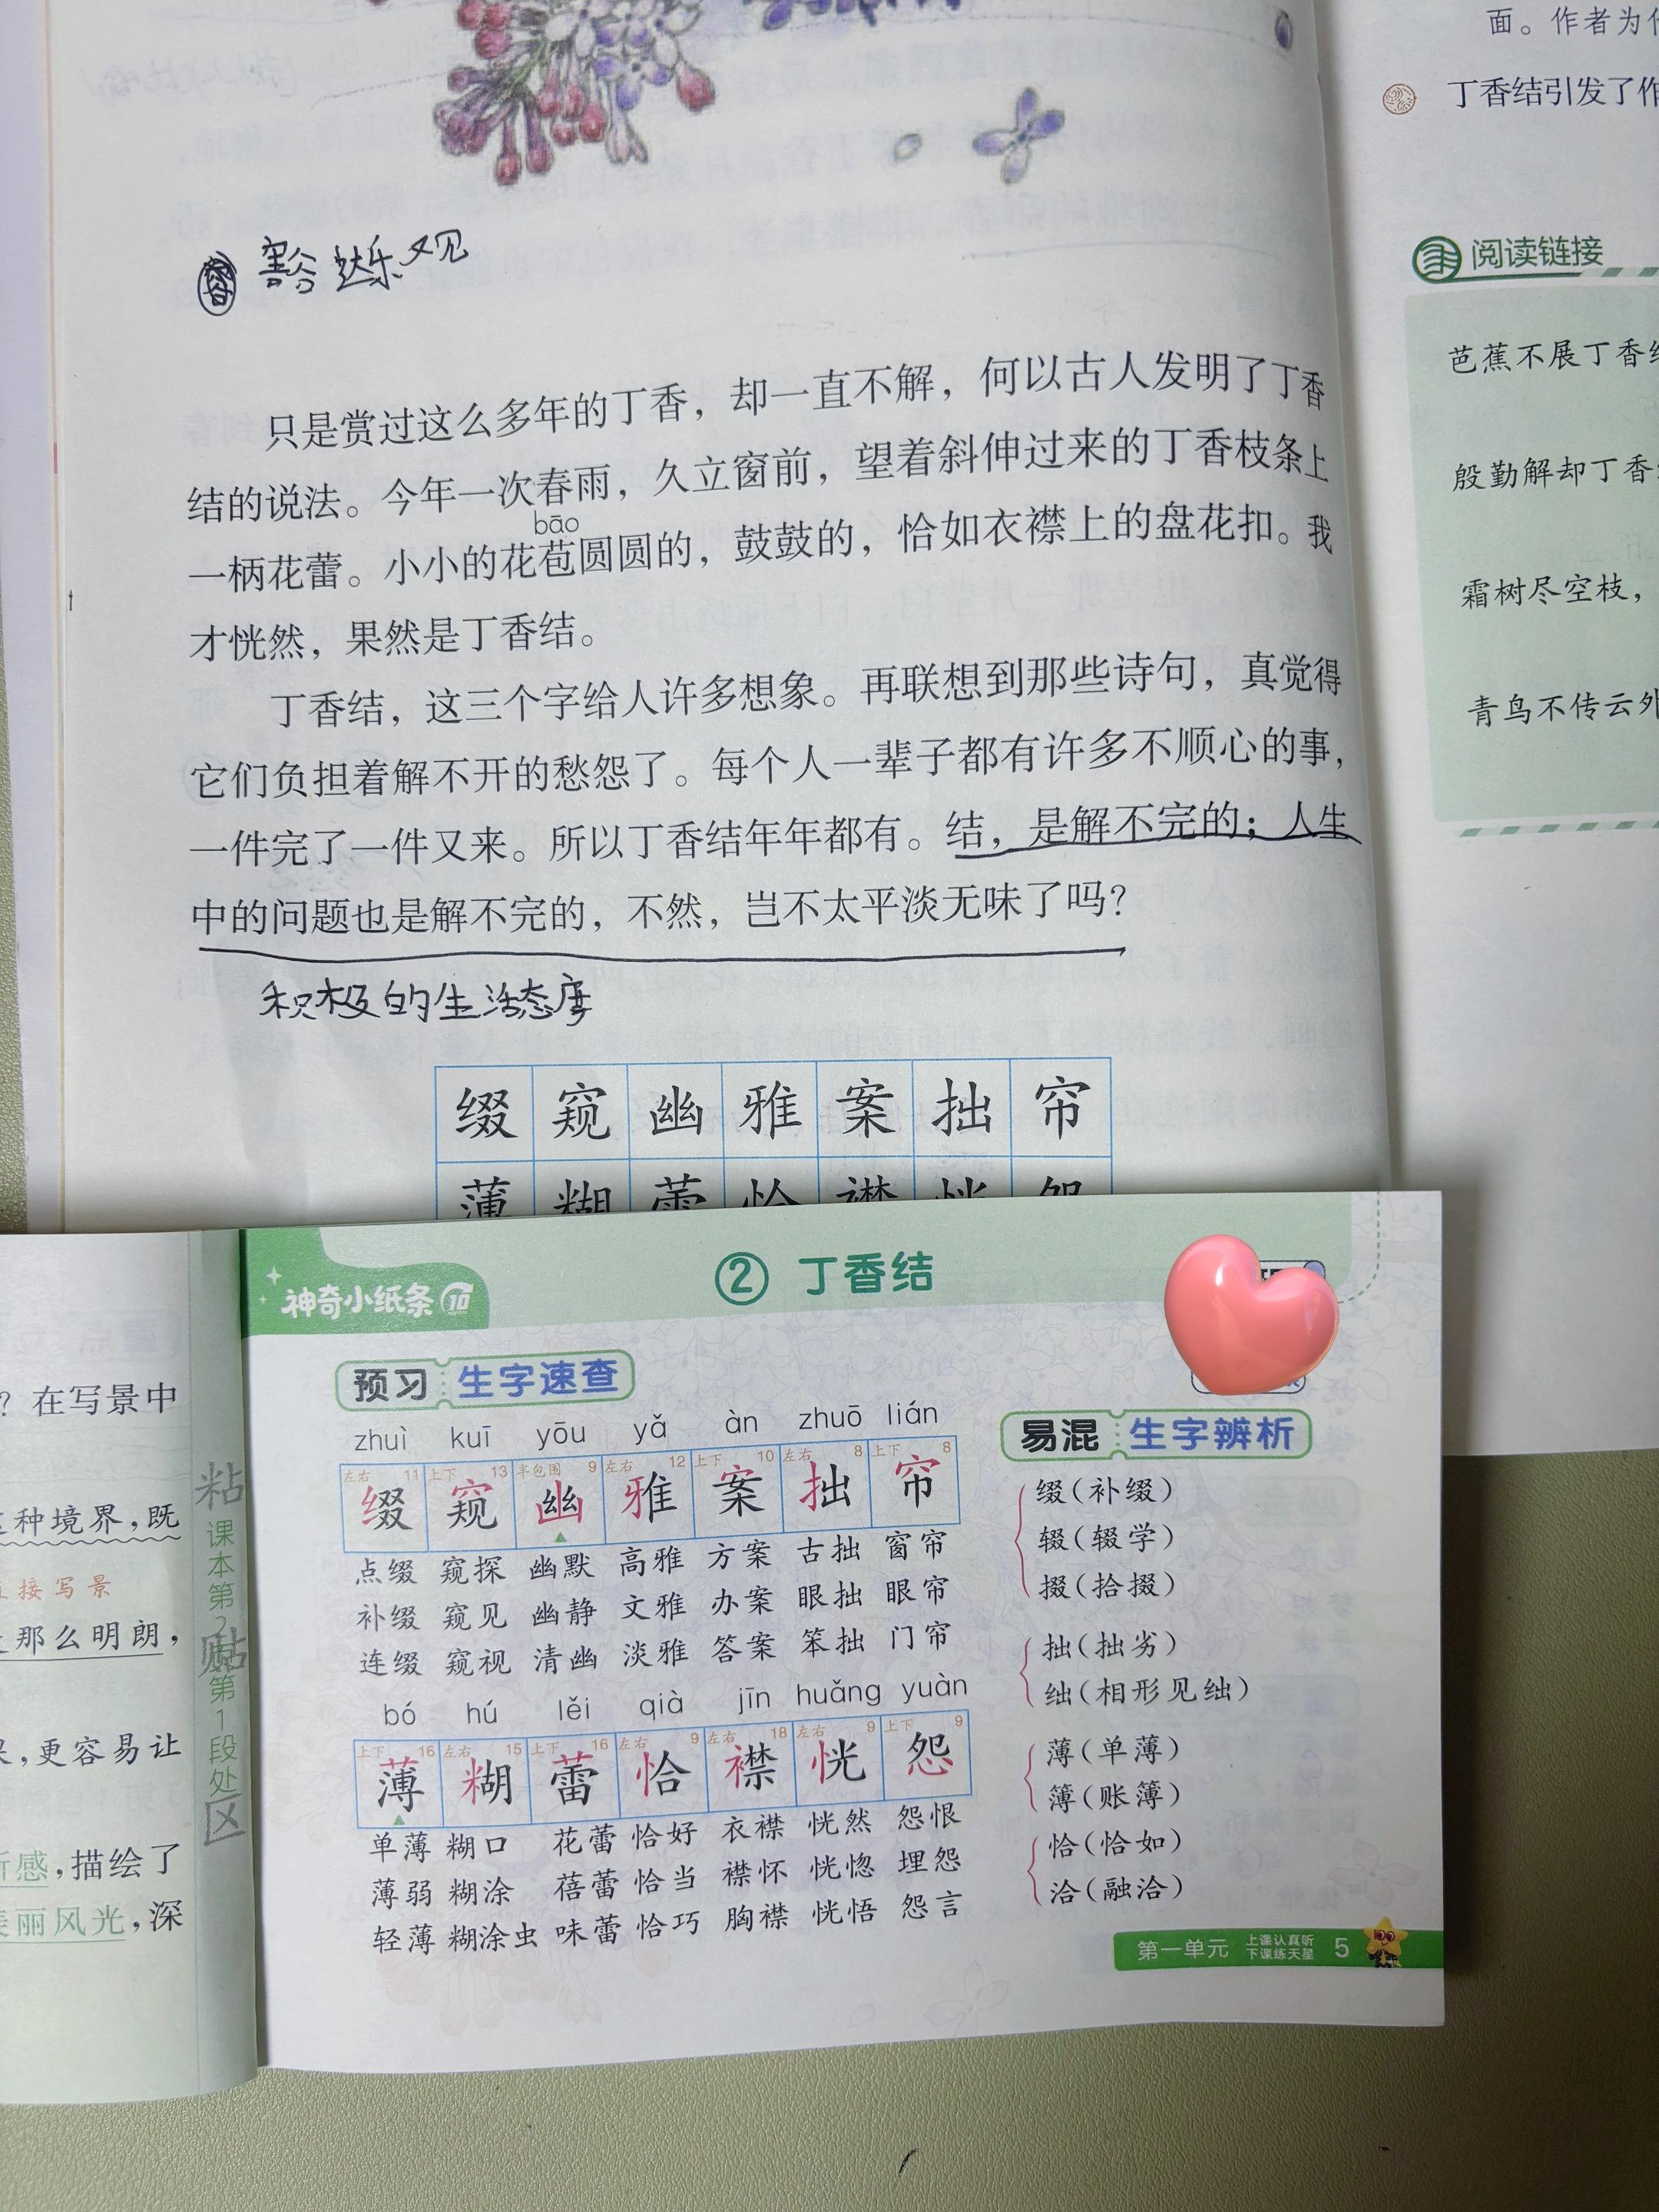 豁达乐观
只是赏过这么多年的丁香，却一直不解，何以古人发明了丁香
结的说法。今年一次春雨，久立窗前，望着斜伸过来的丁香枝条上
bāo
一柄花蕾。小小的花苞圆圆的，鼓鼓的，恰如衣襟上的盘花扣。我
才恍然，果然是丁香结。
丁香结，这三个字给人许多想象。再联想到那些诗句，真觉得
它们负担着解不开的愁怨了。每个人一辈子都有许多不顺心的事，
一件完了一件又来。所以丁香结年年都有。结，是解不完的；人生
中的问题也是解不完的，不然，岂不太平淡无味了吗？
积极的生活态度
缀 窥 幽 雅 案 拙 帘
薄 糊 蕾 恰 襟 恍 怨
面。作者为什
丁香结引发了作
阅读链接
芭蕉不展丁香结
殷勤解却丁香
霜树尽空枝，
青鸟不传云外
？在写景中
这种境界，既
直接写景
那么明朗，
，更容易让
感，描绘了
美丽风光，深
粘贴区
课本第2课第1段处
神奇小纸条10
② 丁香结
预习 生字速查
zhuì kuī yōu yǎ àn zhuō lián
左右 11 上下 13 半包围 9 左右 12 上下 10 左右 8 上下 8
缀 窥 幽 雅 案 拙 帘
点缀 窥探 幽默 高雅 方案 古拙 窗帘
补缀 窥见 幽静 文雅 办案 眼拙 眼帘
连缀 窥视 清幽 淡雅 答案 笨拙 门帘
bó hú lěi qià jīn huǎng yuàn
上下 16 左右 15 上下 16 左右 9 左右 18 左右 9 上下 9
薄 糊 蕾 恰 襟 恍 怨
单薄 糊口 花蕾 恰好 衣襟 恍然 怨恨
薄弱 糊涂 蓓蕾 恰当 襟怀 恍惚 埋怨
轻薄 糊涂虫 味蕾 恰巧 胸襟 恍悟 怨言
易混 生字辨析
缀（补缀）
辍（辍学）
掇（拾掇）
拙（拙劣）
绌（相形见绌）
薄（单薄）
簿（账簿）
恰（恰如）
洽（融洽）
第一单元 上课认真听 下课练天星 5